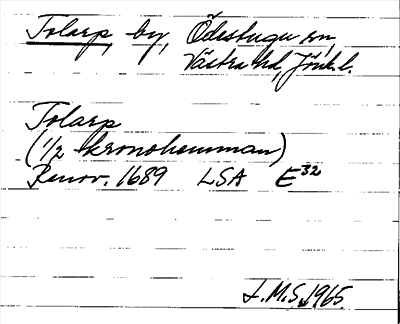 Tolarp, by, Ödestugu sn,
Västra hd, Jönk.l.
Tolarp
(1/2 kronohemman)
Renov. 1689 LSA E32
I.M.S. 1965